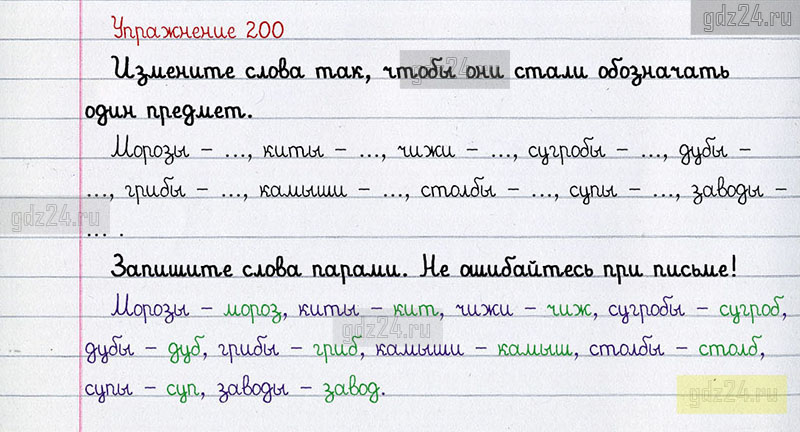 gdz24.ru
Упражнение 200
Измените слова так, чтобы они стали обозначать
gdz24.ru
один предмет.
Морозы – ..., киты – ..., чижи – ..., сугробы – ..., дубы –
..., грибы – ..., камыши – ..., столбы – ..., супы – ..., заводы –
gdz24.ru
... .
Запишите слова парами. Не ошибайтесь при письме!
Морозы – мороз, киты – кит, чижи – чиж, сугробы – сугроб,
gdz24.ru
дубы – дуб, грибы – гриб, камыши – камыш, столбы – столб,
супы – суп, заводы – завод.
gdz24.ru